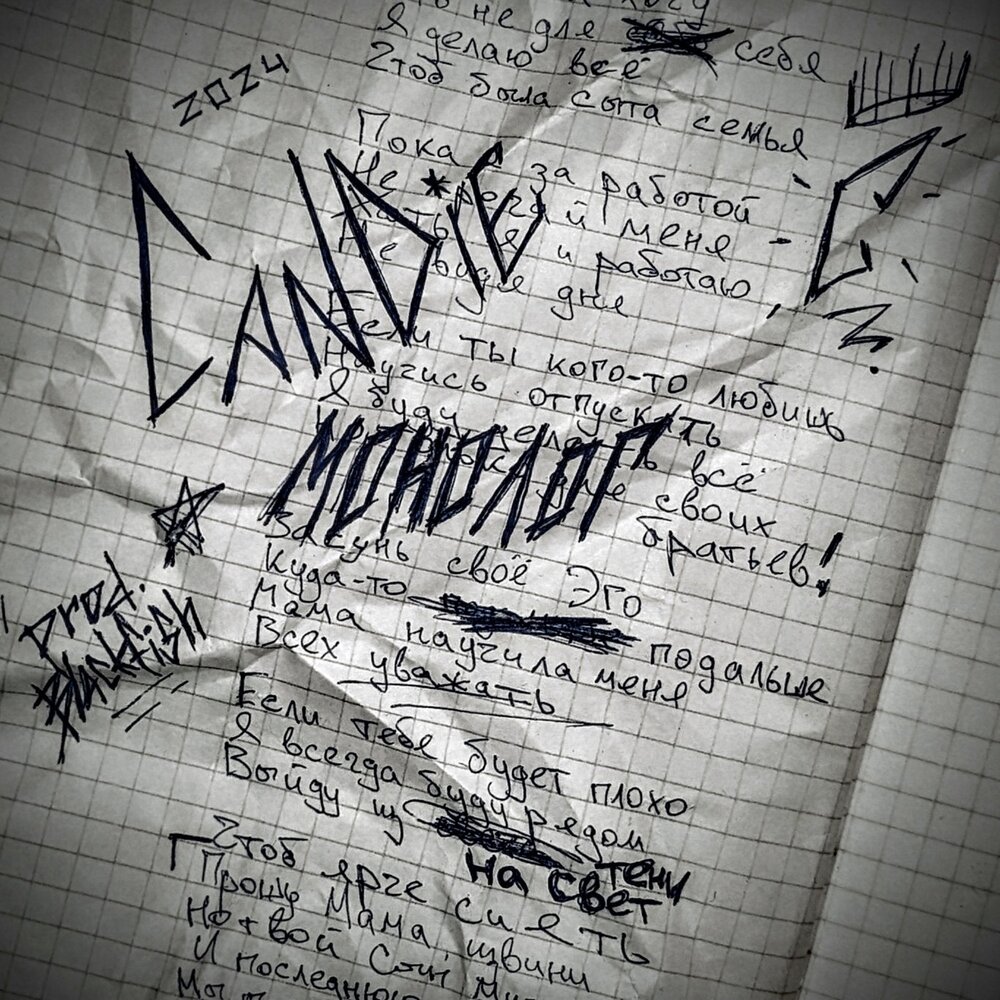 не для себя
Я делаю всё
Чтоб была сыта семья
2024
Пока я за работой
Не *рогай меня
и работаю
дне
CANDIE
Если ты кого-то любишь
Научись отпускать
Я буду всё
своих
братьев!
МОНОЛОГ
Засунь своё Эго
Куда-то подальше
Мама научила меня
Всех уважать
prod.
Если тебе будет плохо
Я всегда буду рядом
Выйду из тени
на свет
Чтоб ярче сиять
Прошу Мама, извини
Но твой Сын
И последнюю
Мы